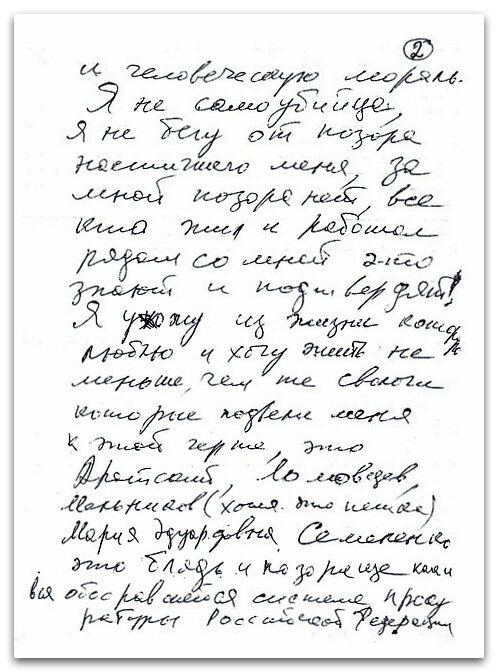 2
и человеческую мораль.
Я не самоубийца,
я не бегу от позора
настигшего меня, за
мной позора нет, все
кто жил и работал
рядом со мной это
знают и подтвердят!
Я ухожу из жизни которую
люблю и хочу жить не
меньше, чем те сволочи
которые подвели меня
к этой черте, это
Ломовцев,
Мельников (хотя это пешка)
Мария Эдуардовна Семененко
это блядь и позорище как и
вся обосравшейся системе проку
ратуры Российской Федерации